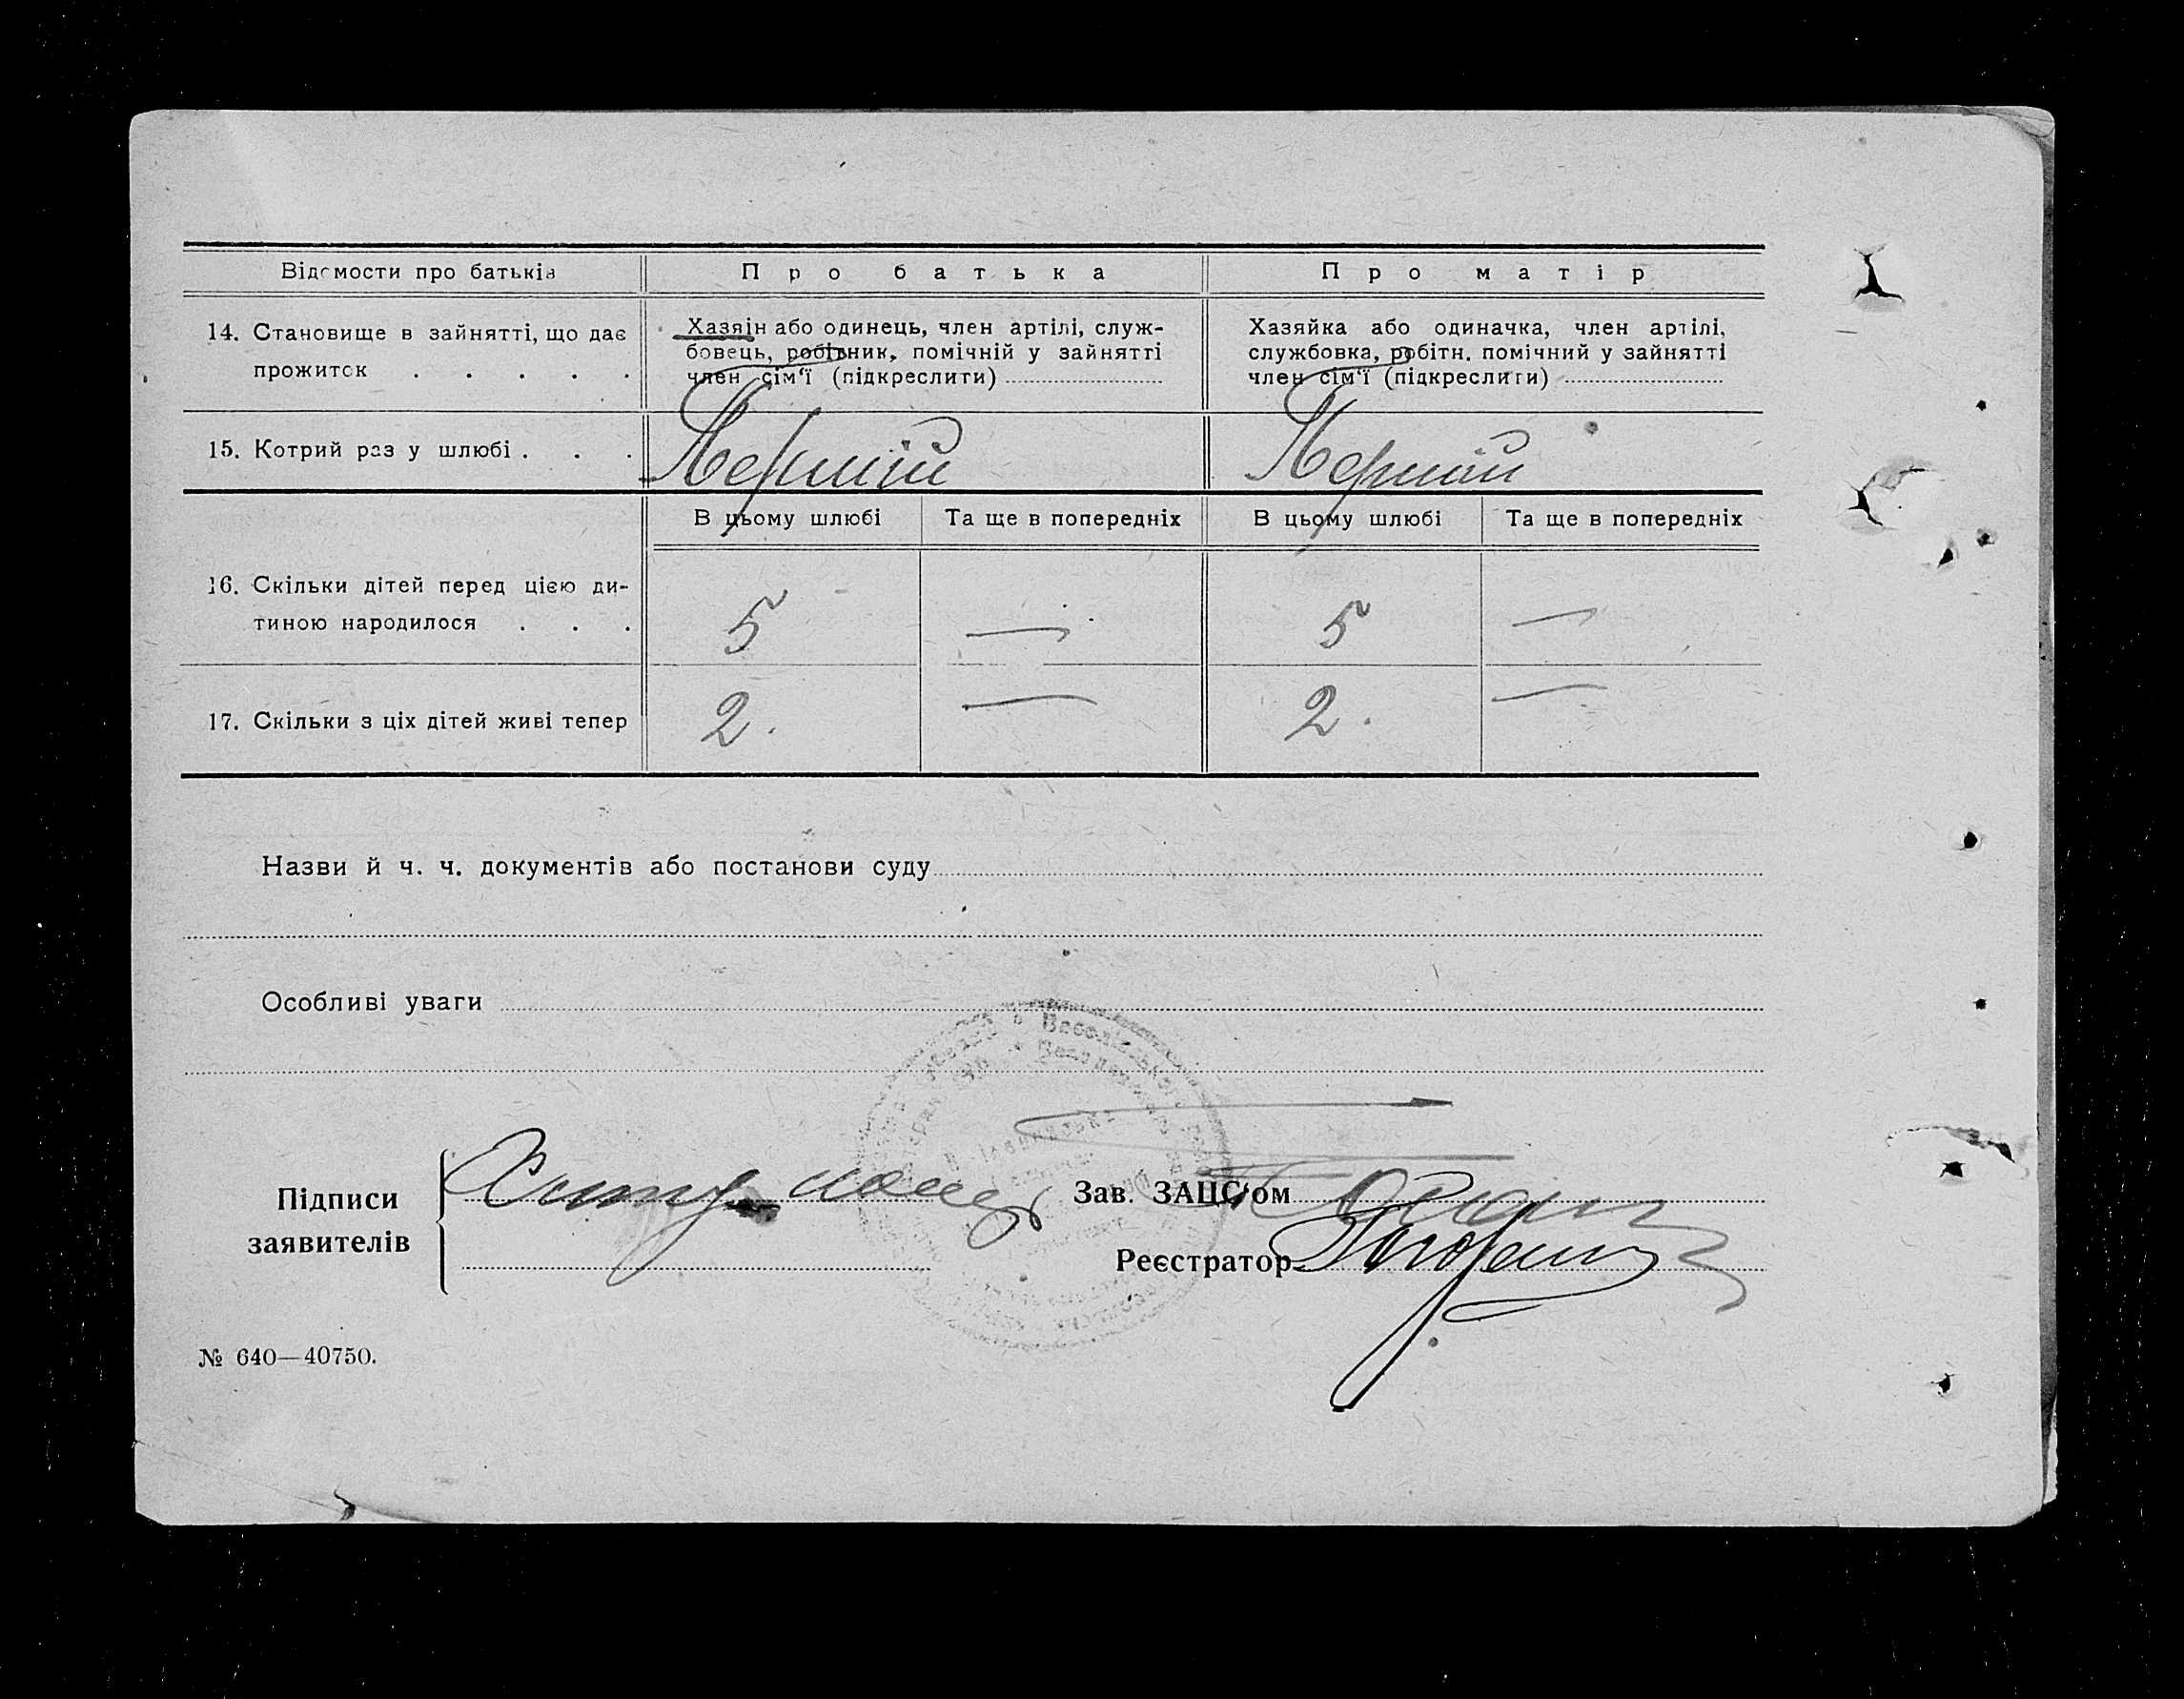 Відомости про батьків
Про батька
Про матір
14. Становище в зайнятті, що дає
прожиток . . . . .
Хазяін або одинець, член артілі, служ-
бовець, робітник, помічній у зайнятті
член сім'ї (підкреслити)
Хазяйка або одиначка, член артілі,
службовка, робітн. помічний у зайнятті
член сім'ї (підкреслити)
15. Котрий раз у шлюбі . . .
Першій
Першій
В цьому шлюбі
Та ще в попередніх
В цьому шлюбі
Та ще в попередніх
16. Скільки дітей перед цією ди-
тиною народилося . . .
5
—
5
—
17. Скільки з ціх дітей живі тепер
2.
—
2.
—
Назви й ч. ч. документів або постанови суду
Особливі уваги
Підписи
заявителів
Зав. ЗАЦС'ом
Реєстратор
№ 640—40750.